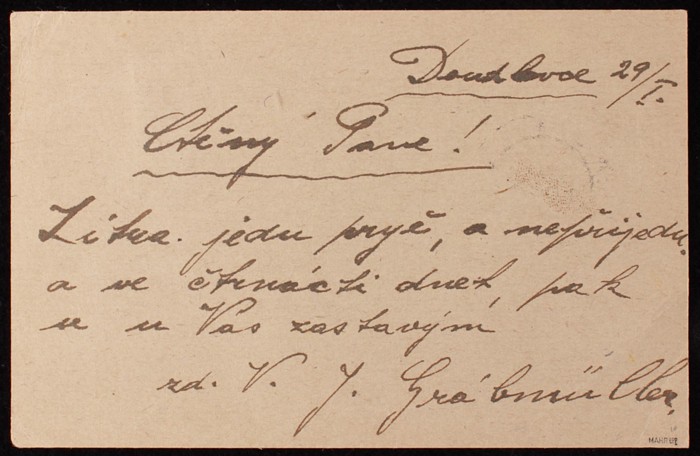 Doudlevce 29/I.
Ctěný Pane!
Zitra. jedu pryč, a nepřijedu.
a ve čtrnácti dnech, pak
u Vás zastavým
zd. V. J. Grábmüller.